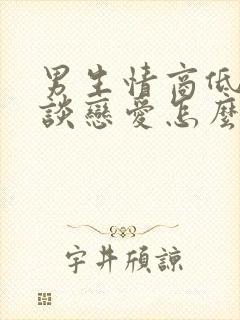 男生情商低
談戀愛怎麼
宇井頎諒